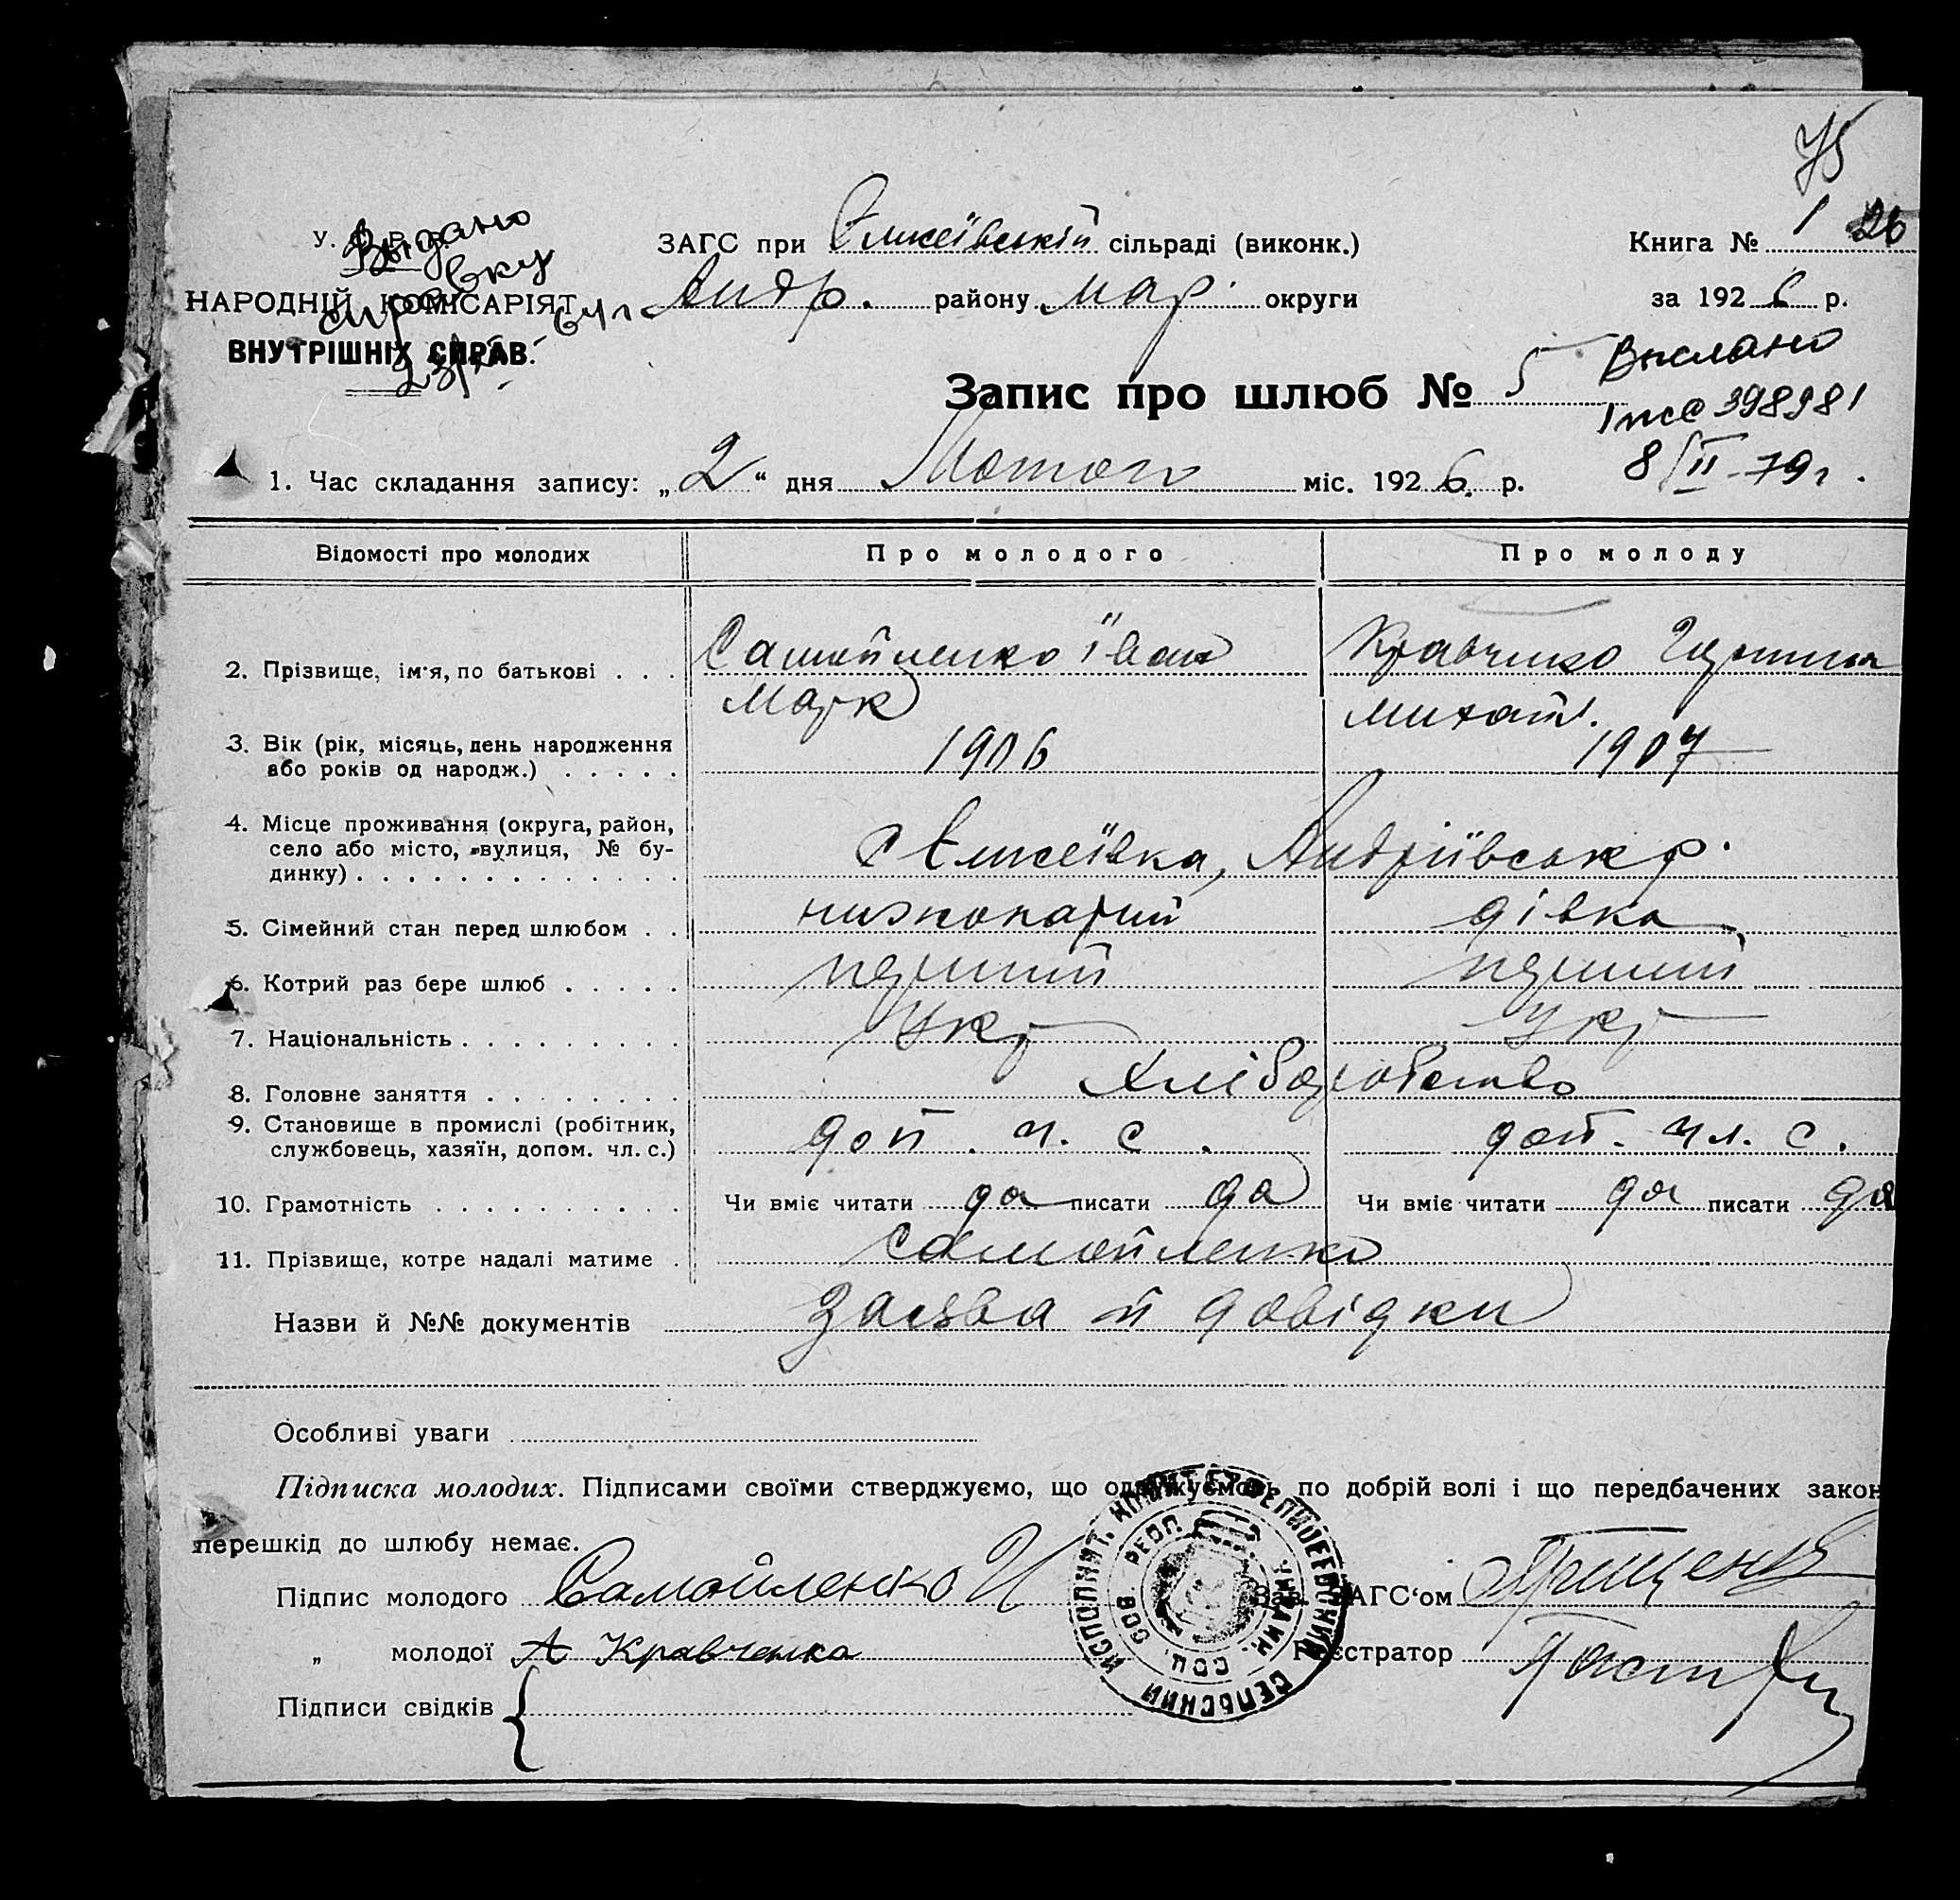 75
У. С. Р. Р.
Выдано
справку
ЗАГС при Єлисеївській сільраді (виконк.)
Книга № 1 26
НАРОДНІЙ КОМІСАРІЯТ
64 г
Андр. району Мар. округи
за 1926 р.
ВНУТРІШНІХ СПРАВ.
Выслано
Запис про шлюб № 5
398981
8/II-79г.
1. Час складання запису: „2“ дня Лютого міс. 1926. р.
Відомості про молодих
Про молодого
Про молоду
2. Прізвище, ім'я, по батькові . . .
Самойленко Іван
Марк
Кравченко
Михайл.
3. Вік (рік, місяць, день народження
або років од народж.) . . . . .
1906
1907
4. Місце проживання (округа, район,
село або місто, вулиця, № бу-
динку) . . . . . . . . . . . . .
с Єлисеївка, Андріївськ р.
5. Сімейний стан перед шлюбом . .
дівка
6. Котрий раз бере шлюб . . . . .
перший
перший
7. Національність . . . . . . . . .
Укр
Укр
8. Головне заняття . . . . . . . .
Хліборобство
9. Становище в промислі (робітник,
службовець, хазяїн, допом. чл. с.)
доп. ч. с.
доп. чл. с.
10. Грамотність . . . . . . . . . .
Чи вміє читати да писати да
Чи вміє читати да писати да
11. Прізвище, котре надалі матиме .
Самойленко
Назви й №№ документів
Заява й довідки
Особливі уваги
Підписка молодих. Підписами своїми стверджуємо, що одружуємось по добрій волі і що передбачених закон
перешкід до шлюбу немає.
Підпис молодого Самойленко И
Зав. ЗАГС‘ом
„ молодої А Кравченко
Реєстратор
Підписи свідків
ИСПОЛНИТ. КОМИТЕТ ЕЛИСЕЕВСКИЙ СЕЛЬСКИЙ
УКРАИН. СОЦ. СОВ. РЕСП.